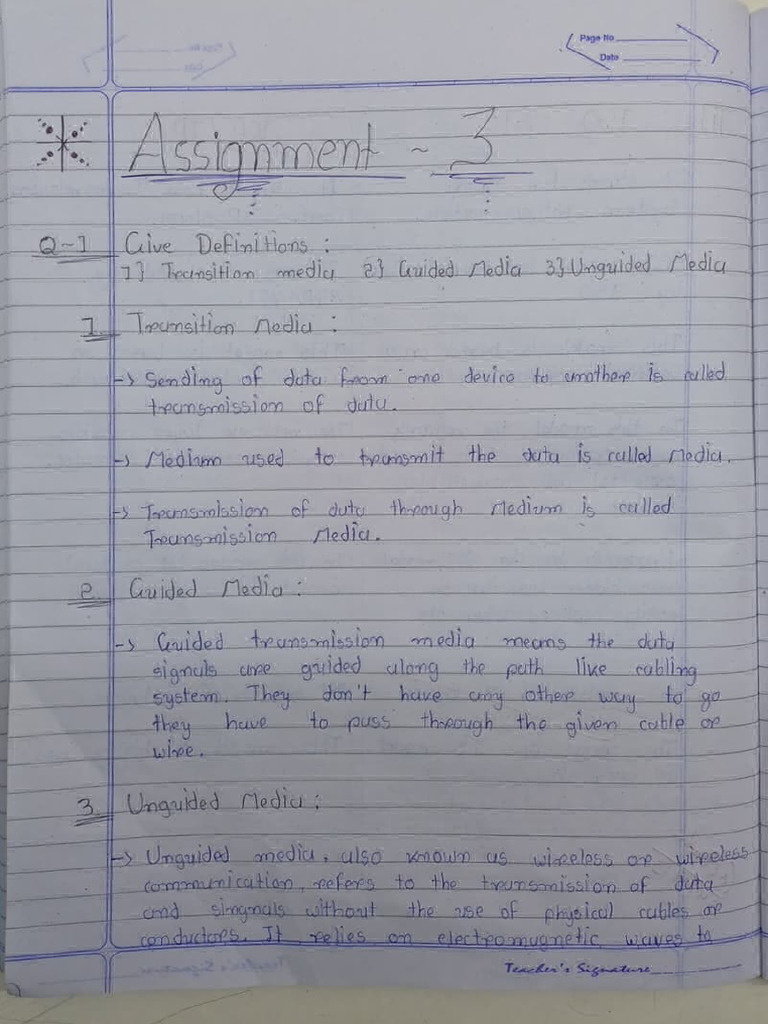 Page No
Date
Assignment - 3
Q-1 Give Definitions :
1} Transition media 2} Guided Media 3} Unguided Media
1. Transition Media :
-> Sending of data from one device to another is called
transmission of data.
-> Medium used to transmit the data is called Media.
-> Transmission of data through Medium is called
Transmission Media.
2. Guided Media :
-> Guided transmission media means the data
signals are guided along the path live cabling
system. They don't have any other way to go
they have to pass through the given cable or
wire.
3. Unguided Media :
-> Unguided media, also known as wireless or wireless
communication, refers to the transmission of data
and singnals without the use of physical cables or
conductors. It relies on electromagnetic waves to
Teacher's Signature